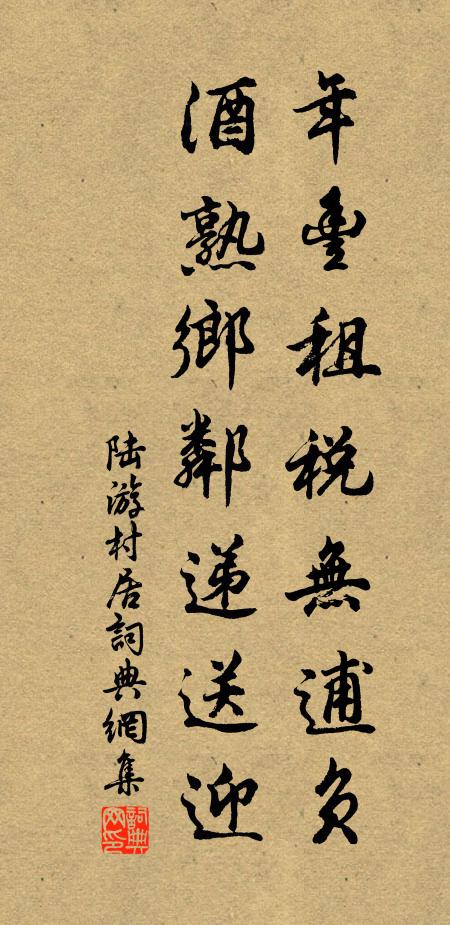 年豐租税無逋負
酒熟鄉鄰递送迎
陆游村居詞典網集
詞典网印